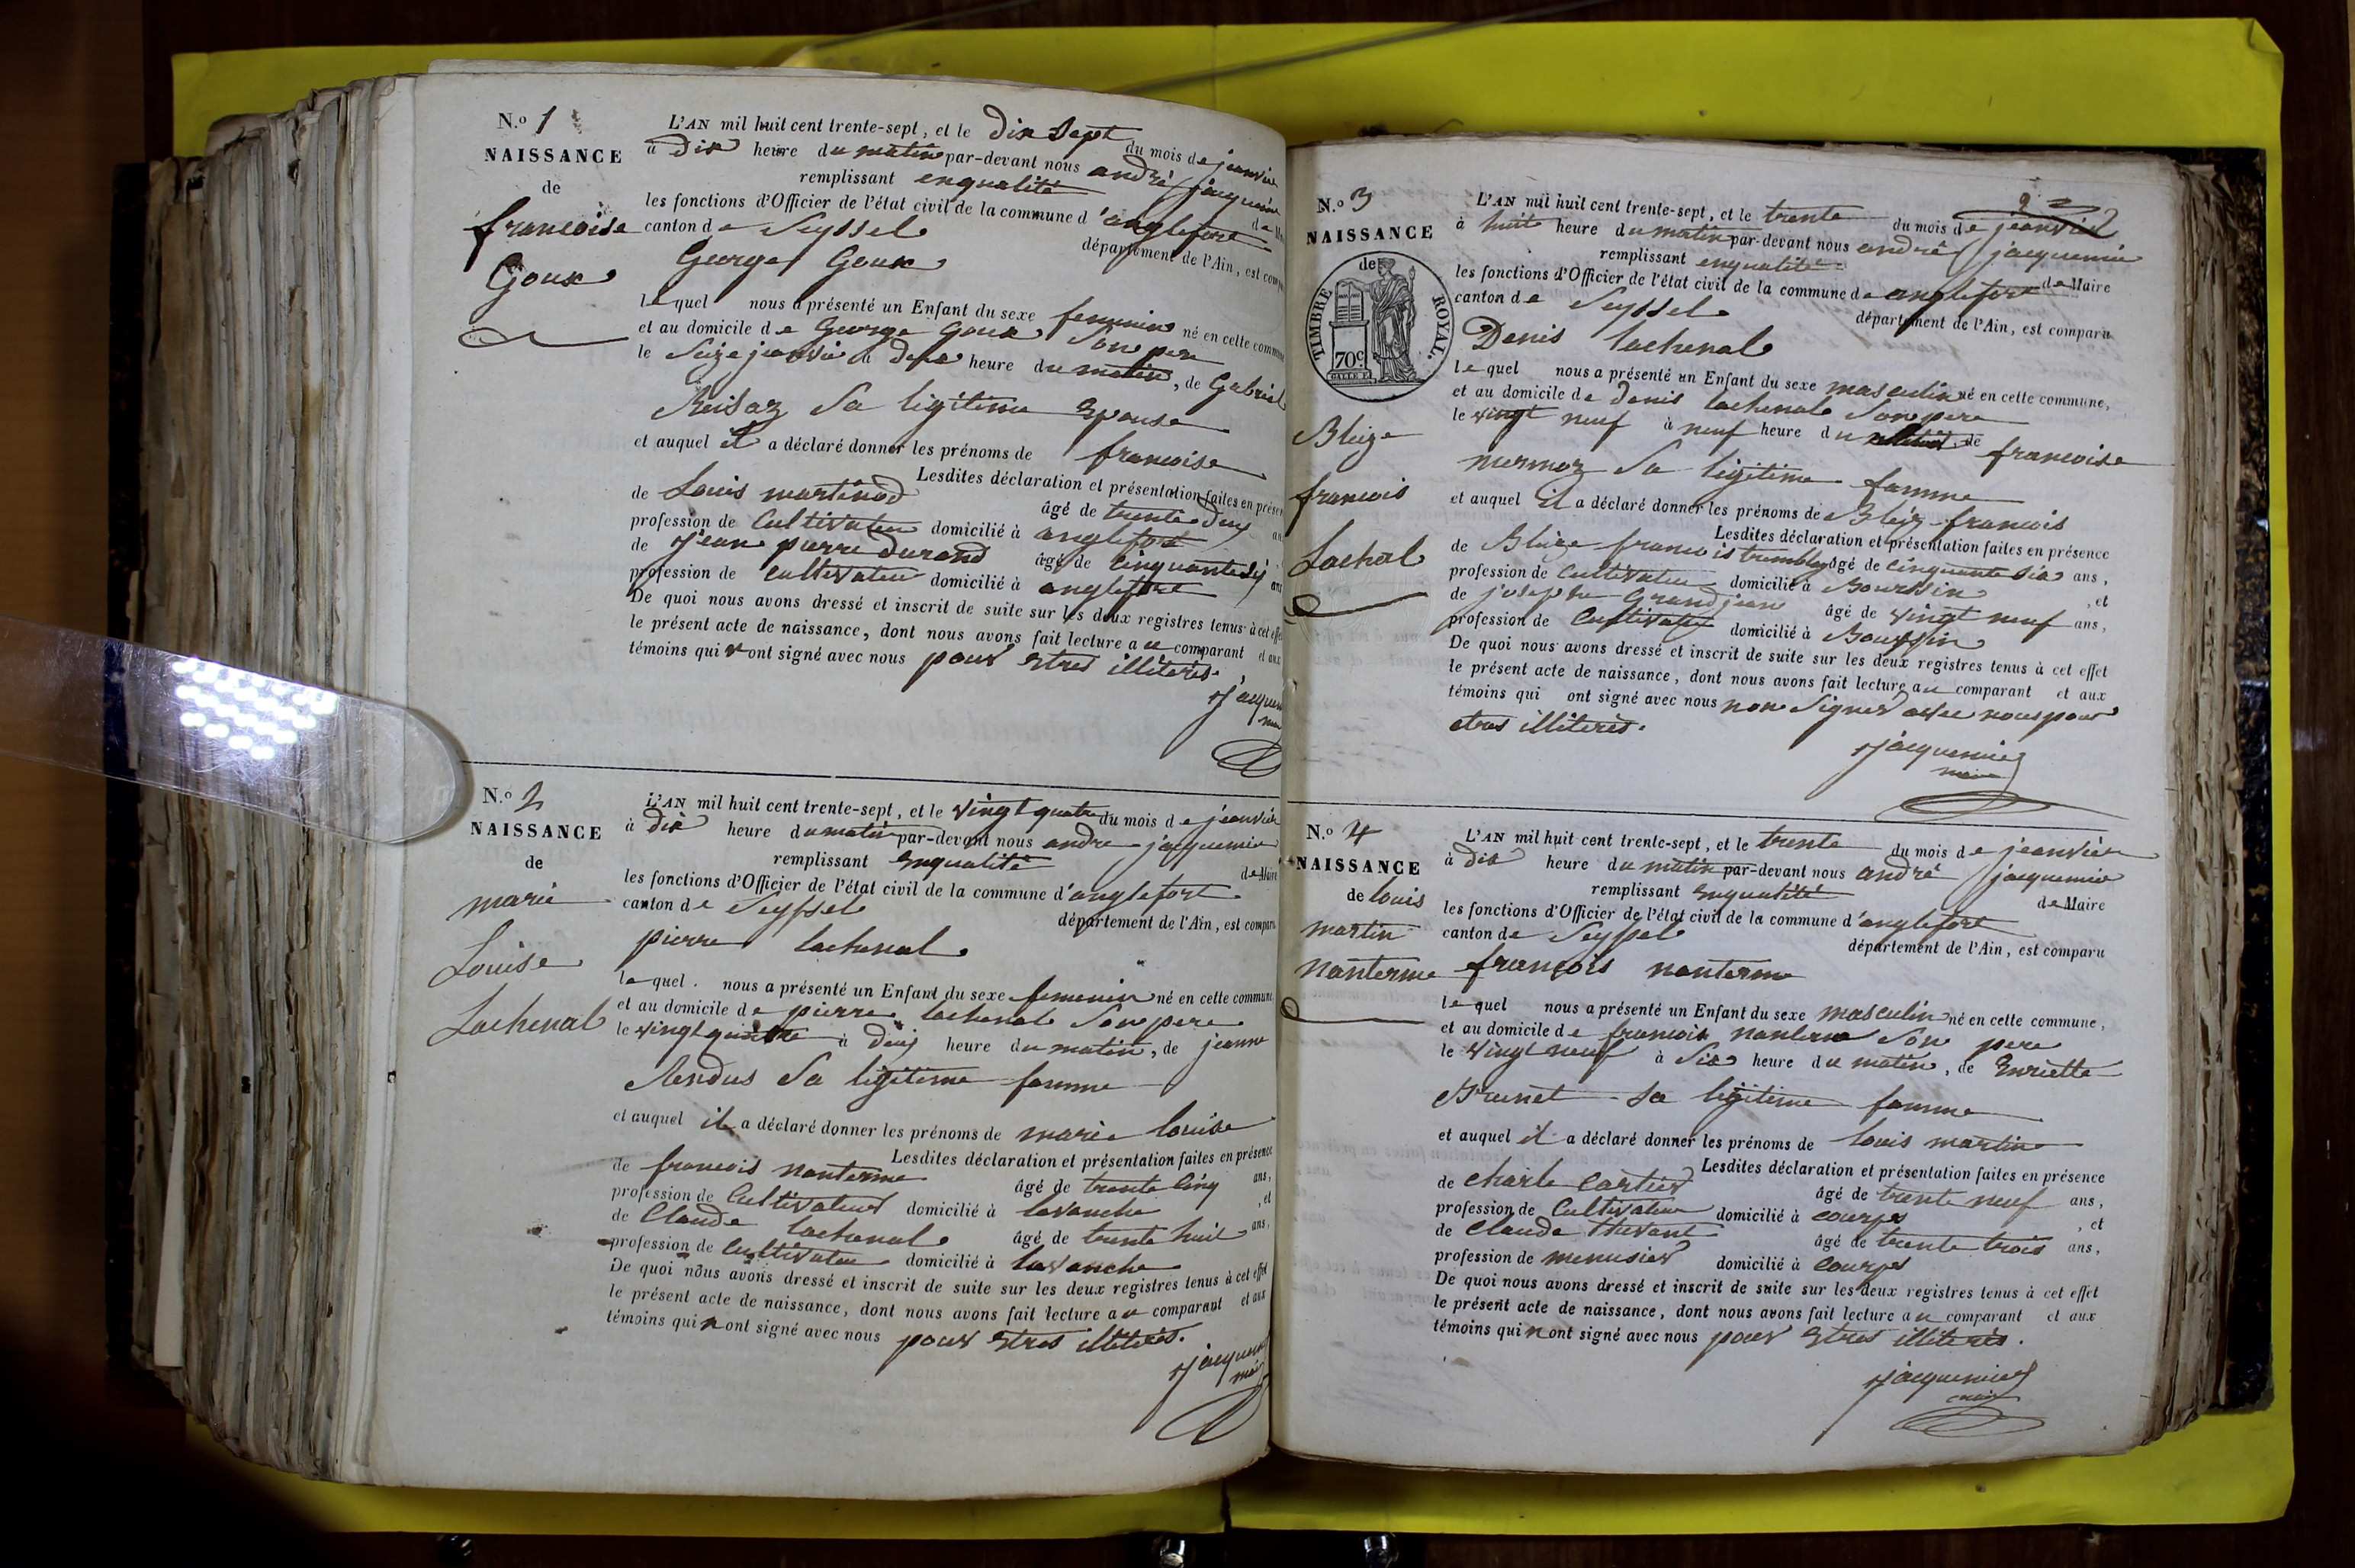 N.o 1
NAISSANCE
de
francoise
Goux
L'AN mil huit cent trente-sept, et le dix sept du mois de jeanvier
à dix heure du matin par-devant nous andré jacquemin
remplissant enqualité de
les fonctions d'Officier de l'état civil de la commune d'anglefort
canton de Seyssel département de l'Ain, est
George Goux
lequel nous a présenté un Enfant du sexe feminin né en cette
et au domicile de George Goux Son pere
le Seize jeanvier à heure du matin, de Gabriel
Sa légitime Epouse
et auquel il a déclaré donner les prénoms de francoise
Lesdites déclaration et présentation faites en
de Louis martinod âgé de trente deux
profession de Cultivateur domicilié à anglefort
de jean pierre durand âgé de cinquante ans
profession de cultivateur domicilié à anglefort
De quoi nous avons dressé et inscrit de suite sur les deux registres tenus à cet
le présent acte de naissance, dont nous avons fait lecture au comparant et aux
témoins qui nont signé avec nous pour Etres illiterés.
N.o 2
NAISSANCE
de
marie
Louise
Lachenal
L'AN mil huit cent trente-sept, et le vingt quatre du mois de jeanvier
à dix heure du matin par-devant nous andre jacquemin
remplissant Enqualité de Maire
les fonctions d'Officier de l'état civil de la commune d'anglefort
canton de Seyssel département de l'Ain, est comparu
pierre lachenal
lequel nous a présenté un Enfant du sexe femenin né en cette commune
et au domicile de pierre lachenal Son pere
le vingt quatre à deux heure du matin, de jeanne
Rendus Sa légitime famme
et auquel il a déclaré donner les prénoms de marie louise
Lesdites déclaration et présentation faites en présence
de francois nanterme âgé de trente cinq ans,
profession de Cultivateur domicilié à lavanche , et
de Claude lachenal âgé de trente huit ans,
profession de Cultivateur domicilié à lavanche
De quoi nous avons dressé et inscrit de suite sur les deux registres tenus à cet effet
le présent acte de naissance, dont nous avons fait lecture au comparant et aux
témoins qui nont signé avec nous pour Etres illiterés.
N.o 3
NAISSANCE
de
TIMBRE ROYAL.
70c.
Bleize
francois
Lachal
2
L'AN mil huit cent trente-sept, et le trente du mois de jeanvier
à huit heure du matin par-devant nous andré jacquemin
remplissant enqualité de Maire
les fonctions d'Officier de l'état civil de la commune de anglefort
canton de Seyssel département de l'Ain, est comparu
Denis lachenal
lequel nous a présenté un Enfant du sexe masculin né en cette commune,
et au domicile de denis lachenal Son pere
le vingt neuf à neuf heure du de francoise
mermoz Sa légitime famme
et auquel il a déclaré donner les prénoms de Bleize francois
Lesdites déclaration et présentation faites en présence
de Bleize francois tremblay âgé de cinquante six ans,
profession de Cultivateur domicilié à Boursin , et
de joseph Grandjean âgé de vingt neuf ans,
profession de Cultivateur domicilié à Boursin
De quoi nous avons dressé et inscrit de suite sur les deux registres tenus à cet effet
le présent acte de naissance, dont nous avons fait lecture au comparant et aux
témoins qui ont signé avec nous non Signer avec nous pour
etres illiterés.
jacquemin
maire
N.o 4
NAISSANCE
de louis
martin
nanterme
L'AN mil huit cent trente-sept, et le trente du mois de jeanvier
à dix heure du matin par-devant nous andré jacquemin
remplissant Enqualité de Maire
les fonctions d'Officier de l'état civil de la commune d'anglefort
canton de Seyssel département de l'Ain, est comparu
françois nanterme
lequel nous a présenté un Enfant du sexe masculin né en cette commune,
et au domicile de francois nanterme Son pere
le vingt neuf à Six heure du matin, de Enriette
Brunet Sa légitime famme
et auquel il a déclaré donner les prénoms de louis martin
Lesdites déclaration et présentation faites en présence
de charle cartier âgé de trente neuf ans,
profession de Cultivateur domicilié à , et
de claude thevant âgé de trente trois ans,
profession de menusier domicilié à
De quoi nous avons dressé et inscrit de suite sur les deux registres tenus à cet effet
le présent acte de naissance, dont nous avons fait lecture au comparant et aux
témoins qui nont signé avec nous pour Etres illiterés.
jacquemin
maire